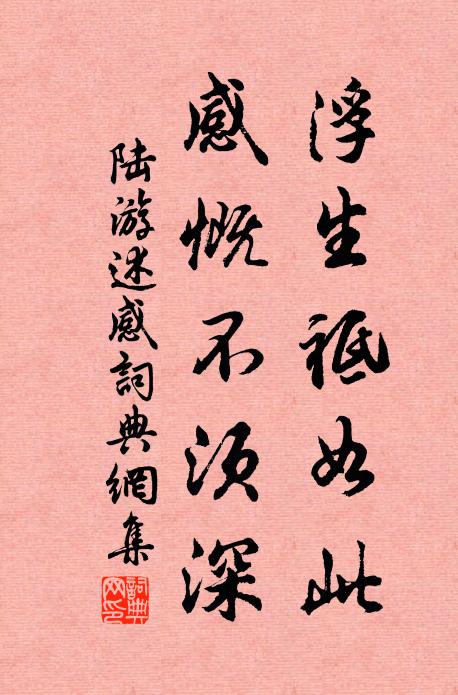 浮生祗如此
感慨不須深
陆游述感詞典網集
詞典網印